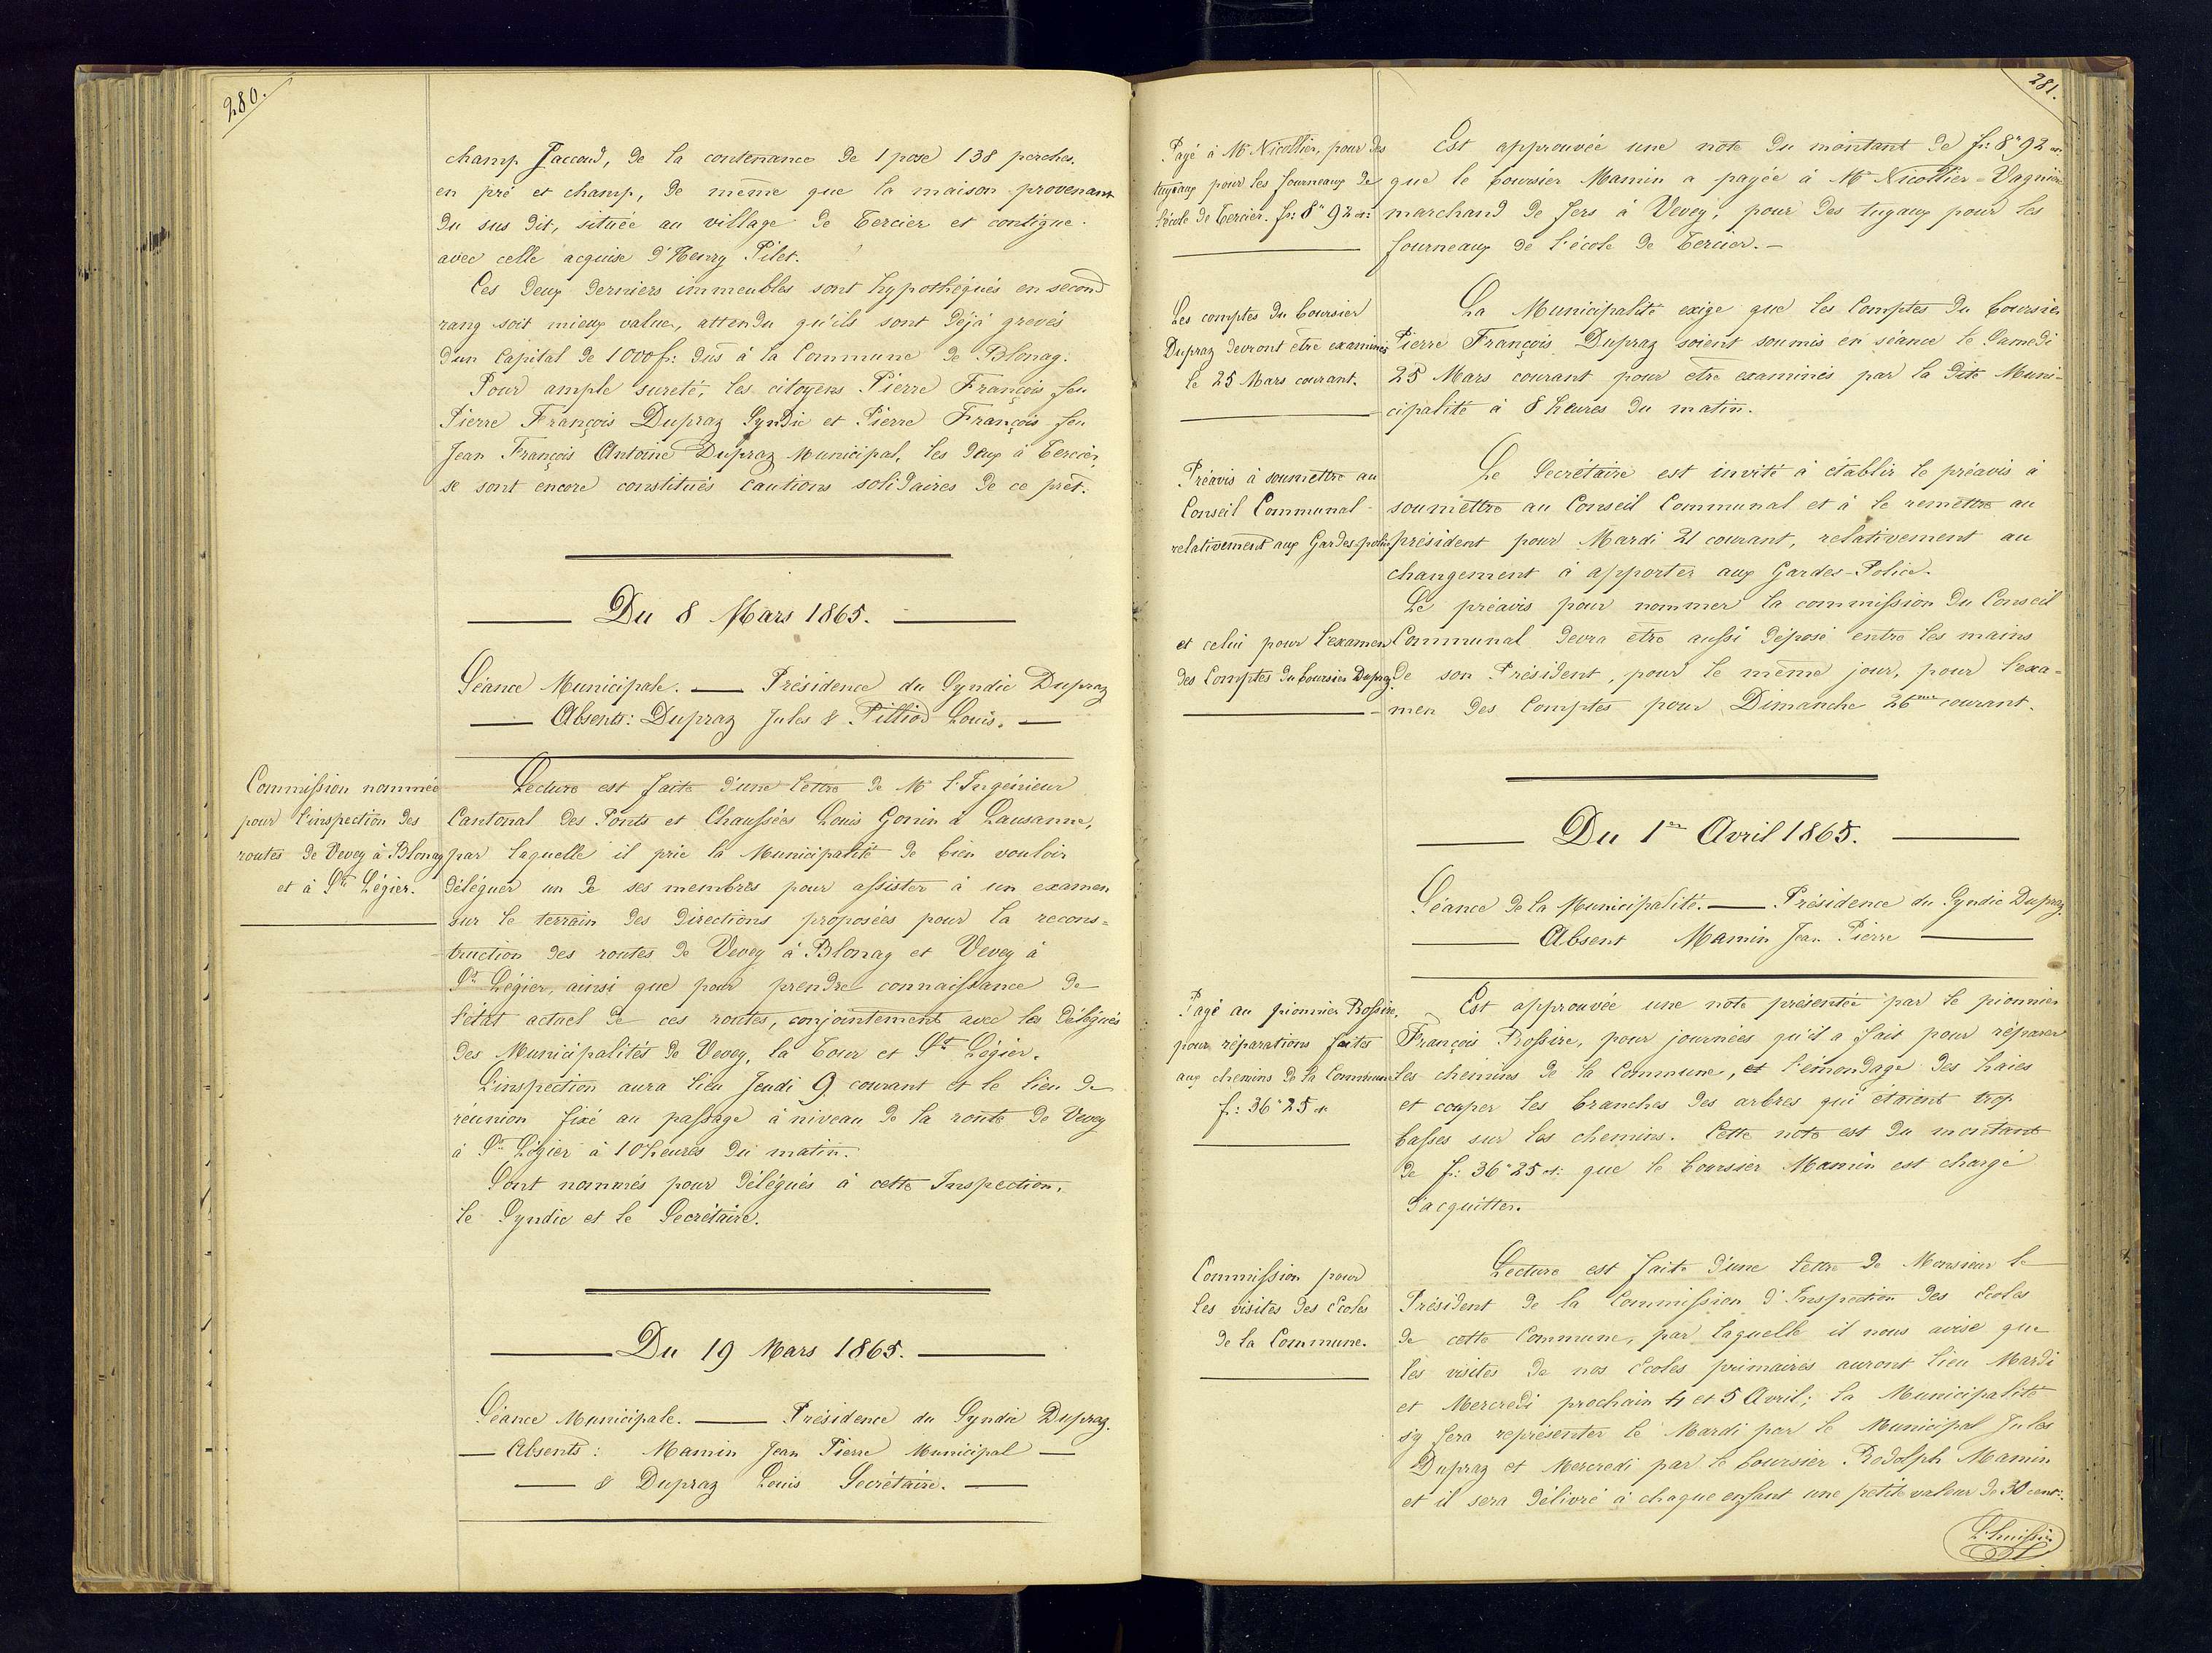 280.
champ Jaccoud, de la contenance de 1 pose 138 perches,
en pré et champ, de même que la maison provenant
du sus dit, située au village de Tercier et contigue
avec celle acquise d'Henry Pilet.
Ces deux derniers immeubles sont hypothéqués en second
rang soit mieux value, attendu qu'ils sont déjà grevés
d'un Capital de 1000 fr: dûs à la Commune de Blonay.
Pour ample sureté, les citoyens Pierre François feu
Pierre François Dupraz Syndic et Pierre François feu
Jean François Antoine Dupraz Municipal, les deux à Tercier,
se sont encore constitués cautions solidaires de ce prêt.
Du 8 Mars 1865.
Séance Municipale. — Présidence du Syndic Dupraz
Absents: Dupraz Jules & Pilliod Louis.
Commission nommée
pour l'inspection des
routes de Vevey à Blonay
et à St Légier.
Lecture est faite d'une lettre de Mr l'Ingénieur
Cantonal des Ponts et Chaussées Louis Gonin à Lausanne,
par laquelle il prie la Municipalité de bien vouloir
déléguer un de ses membres pour assister à un examen
sur le terrain des directions proposées pour la recons=
truction des routes de Vevey à Blonay et Vevey à
St Légier, ainsi que pour prendre connaissance de
l'état actuel de ces routes, conjointement avec les délégués
des Municipalités de Vevey, la Tour et St Légier.
L'inspection aura lieu Jeudi 9 courant et le lieu de
réunion fixé au passage à niveau de la route de Vevey
à St Légier à 10 heures du matin.
Sont nommés pour délégués à cette Inspection,
le Syndic et le Secrétaire.
Du 19 Mars 1865.
Séance Municipale. — Présidence du Syndic Dupraz.
Absents: Mamin Jean Pierre Municipal
& Dupraz Louis Secrétaire.
281.
Payé à Mr Nicollier, pour des
tuyaux pour les fourneaux de
l'école de Tercier. fr: 8" 92 ct:
Est approuvée une note du montant de fr: 8" 92 ct
que le boursier Mamin a payée à Mr Nicollier=Vagnière
marchand de fers à Vevey, pour des tuyaux pour les
fourneaux de l'école de Tercier.
Les comptes du boursier
Dupraz devront être examinés
le 25 Mars courant.
La Municipalité exige que les Comptes du boursier
Pierre François Dupraz soient soumis en séance le Samedi
25 Mars courant pour être examinés par la dite Muni-
cipalité à 8 heures du matin.
Préavis à soumettre au
Conseil Communal
relativement aux Gardes-police
Le Secrétaire est invité à établir le préavis à
soumettre au Conseil Communal et à le remettre au
président pour Mardi 21 courant, relativement au
changement à apporter aux Gardes-Police.
et celui pour l'examen
des Comptes du boursier Dupraz
Le préavis pour nommer la commission du Conseil
Communal devra être aussi déposé entre les mains
de son Président, pour le même jour, pour l'exa=
men des Comptes pour Dimanche 26me courant.
Du 1er Avril 1865.
Séance de la Municipalité. — Présidence du Syndic Dupraz.
Absent Mamin Jean Pierre
Payé au pionnier Rossire,
pour réparations faites
aux chemins de la Commune
f: 36" 25 ct
Est approuvée une note présentée par le pionnier
François Rossire, pour journées qu'il a fait pour réparer
les chemins de la Commune, et l'émondage des haies
et couper les branches des arbres qui étaient trop
basses sur les chemins. Cette note est du montant
de f: 36" 25 ct: que le boursier Mamin est chargé
d'acquitter.
Commission pour
les visites des écoles
de la Commune.
Lecture est faite d'une lettre de Monsieur le
Président de la Commission d'Inspection des écoles
de cette Commune, par laquelle il nous avise que
les visites de nos écoles primaires auront lieu Mardi
et Mercredi prochain 4 et 5 Avril; la Municipalité
s'y fera représenter le Mardi par le Municipal Jules
Dupraz et Mercredi par le boursier Rodolph Mamin
et il sera délivré à chaque enfant une petite valeur de 30 cent:
L'huissier